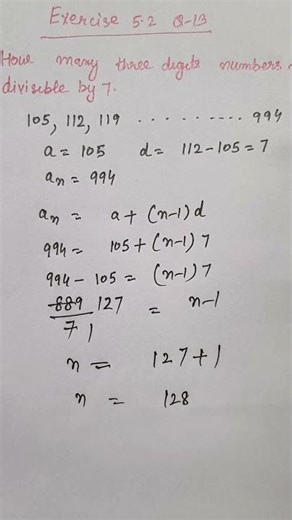 Exercise 5.2 Q-13
How many three digits numbers
divisible by 7.
105, 112, 119 .......... 994
a = 105 d = 112-105 = 7
an = 994
an = a + (n-1) d
994 = 105 + (n-1) 7
994 - 105 = (n-1) 7
889 127 = n-1
7 1
n = 127 + 1
n = 128